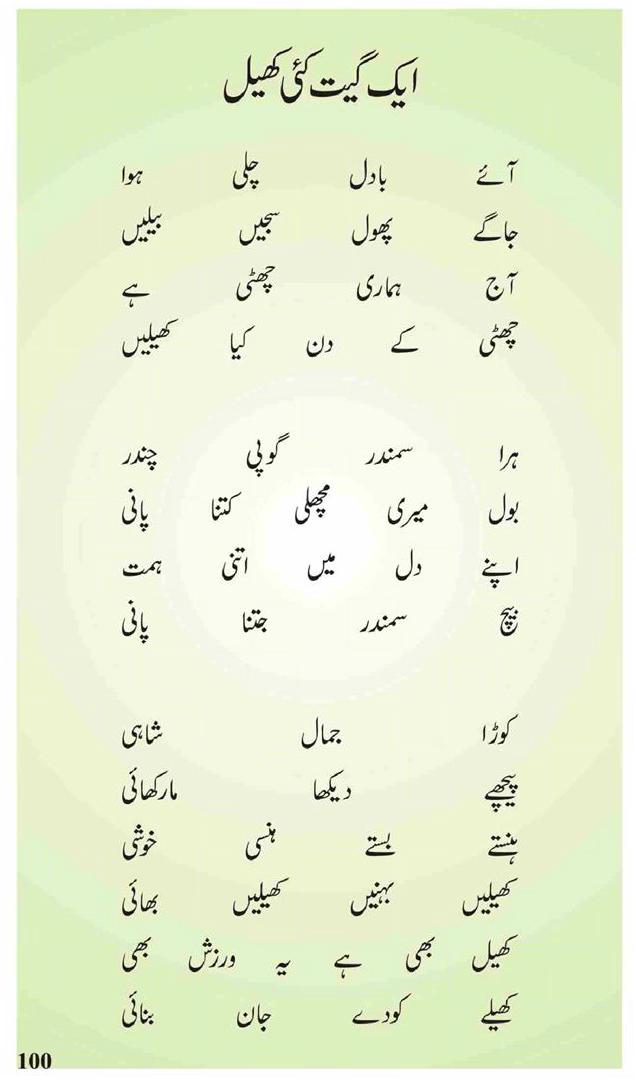 ایک گیت کئی کھیل
آئے بادل چلی ہوا
جاگے پھول سجیں بیلیں
آج ہماری چھٹی ہے
چھٹی کے دن کیا کھیلیں
ہرا سمندر گوپی چندر
بول میری مچھلی کتنا پانی
اپنے دل میں اتنی ہمت
بیچ سمندر جتنا پانی
کوڑا جمال شاہی
پیچھے دیکھا مارکھائی
ہنستے بستے ہنسی خوشی
کھیلیں بہنیں کھیلیں بھائی
کھیل بھی ہے یہ ورزش بھی
کھیلے کودے جان بنائی
100